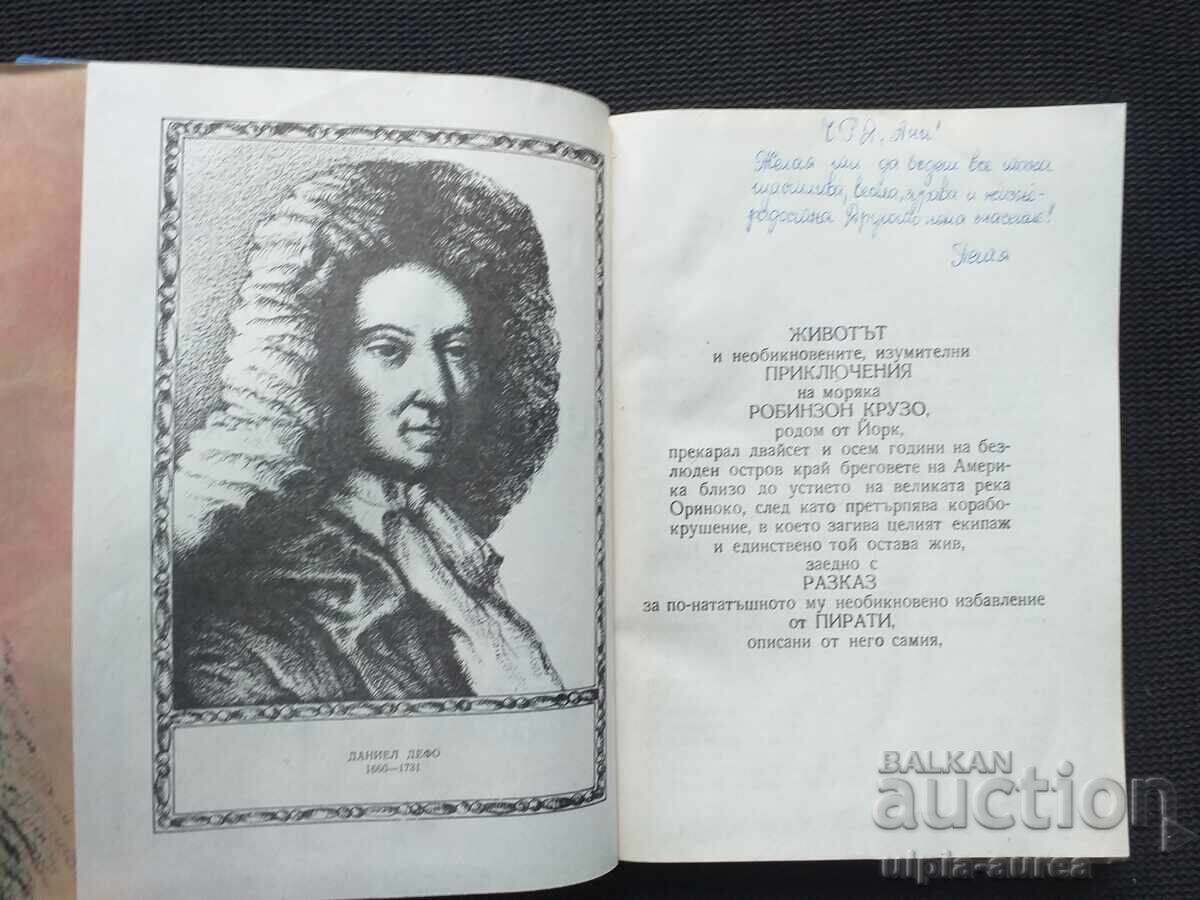 ДАНИЕЛ ДЕФО
1660—1731
Ч Р Д, Ани!
Желая ти да бъдеш все така
щастлива, весела, здрава и жизне-
радостна
Пегая
ЖИВОТЪТ
и необикновените, изумителни
ПРИКЛЮЧЕНИЯ
на моряка
РОБИНЗОН КРУЗО,
родом от Йорк,
прекарал двайсет и осем години на без-
люден остров край бреговете на Амери-
ка близо до устието на великата река
Ориноко, след като претърпява корабо-
крушение, в което загива целият екипаж
и единствено той остава жив,
заедно с
РАЗКАЗ
за по-нататъшното му необикновено избавление
от ПИРАТИ,
описани от него самия,
BALKAN
auction
ulpia-aurea